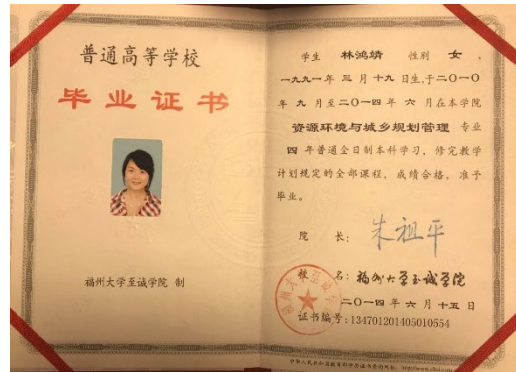 普通高等学校
毕业证书
福州大学至诚学院 制
学生 林鸿婧 性别 女 、
一九九一年 三 月 十九 日生,于二〇一〇
年 九 月至二〇一四年 六 月在本学院
资源环境与城乡规划管理 专业
四 年普通全日制本科学习, 修完教学
计划规定的全部课程, 成绩合格, 准予
毕业。
院 长: 朱祖平
校 名: 福州大学至诚学院
二〇一四 年 六 月 十五 日
证书编号: 134701201405010554